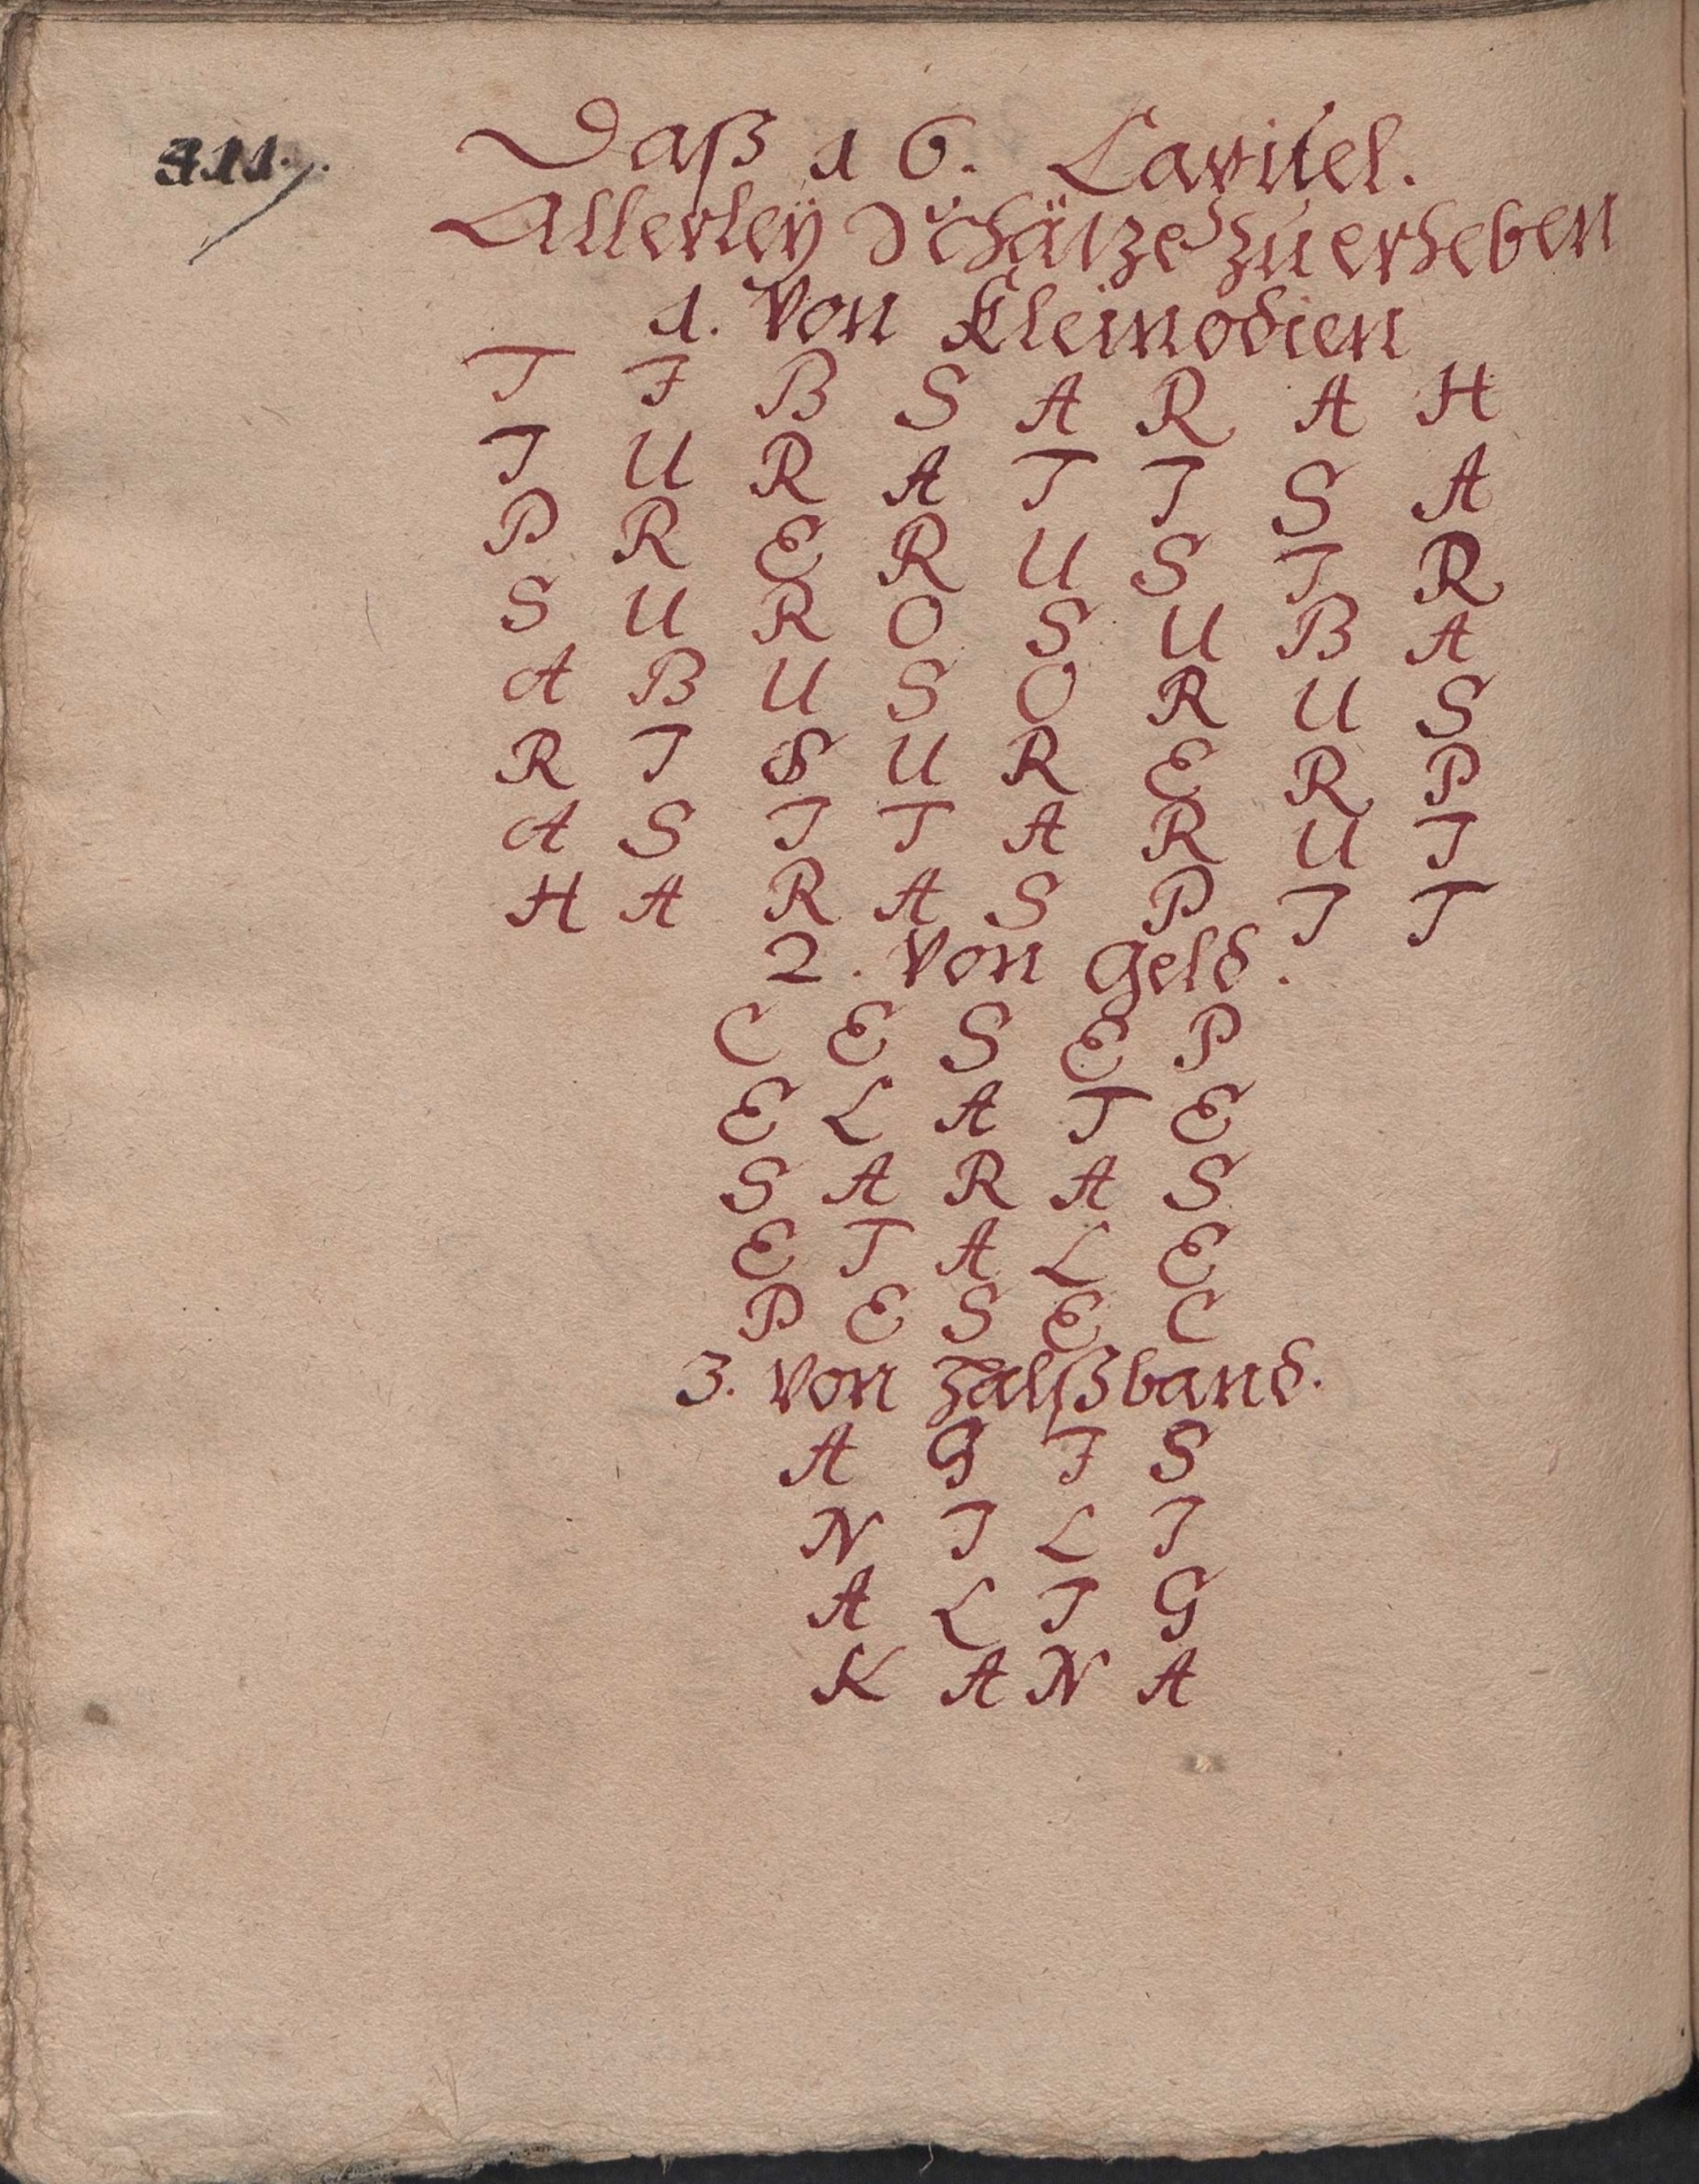 Daß 16. Capitel.
Allerleÿ Schätze zu erheben
1. Von Kleinodien
T I B S A R A H
I U R A T I S A
P R E R U S I R
S U R O S U B A
A B U S O R U S
R I S U R E R P
A S I T A R U I
H A R A S P I T
2. Von Geld.
C E S E P
E L A T E
S A R A S
E T A L E
P E S E C
3. Von Halßband.
A G I S
N I L I
A L I G
K A N A